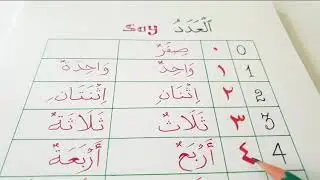 اَلْعَدَدُ say
0 ٠ صِفَرٌ
1 ١ وَاحِدٌ وَاحِدَةٌ
2 ٢ اِثْنَانِ اِثْنَتَانِ
3 ٣ ثَلَاثٌ ثَلَاثَةٌ
4 ٤ أَرْبَعٌ أَرْبَعَةٌ